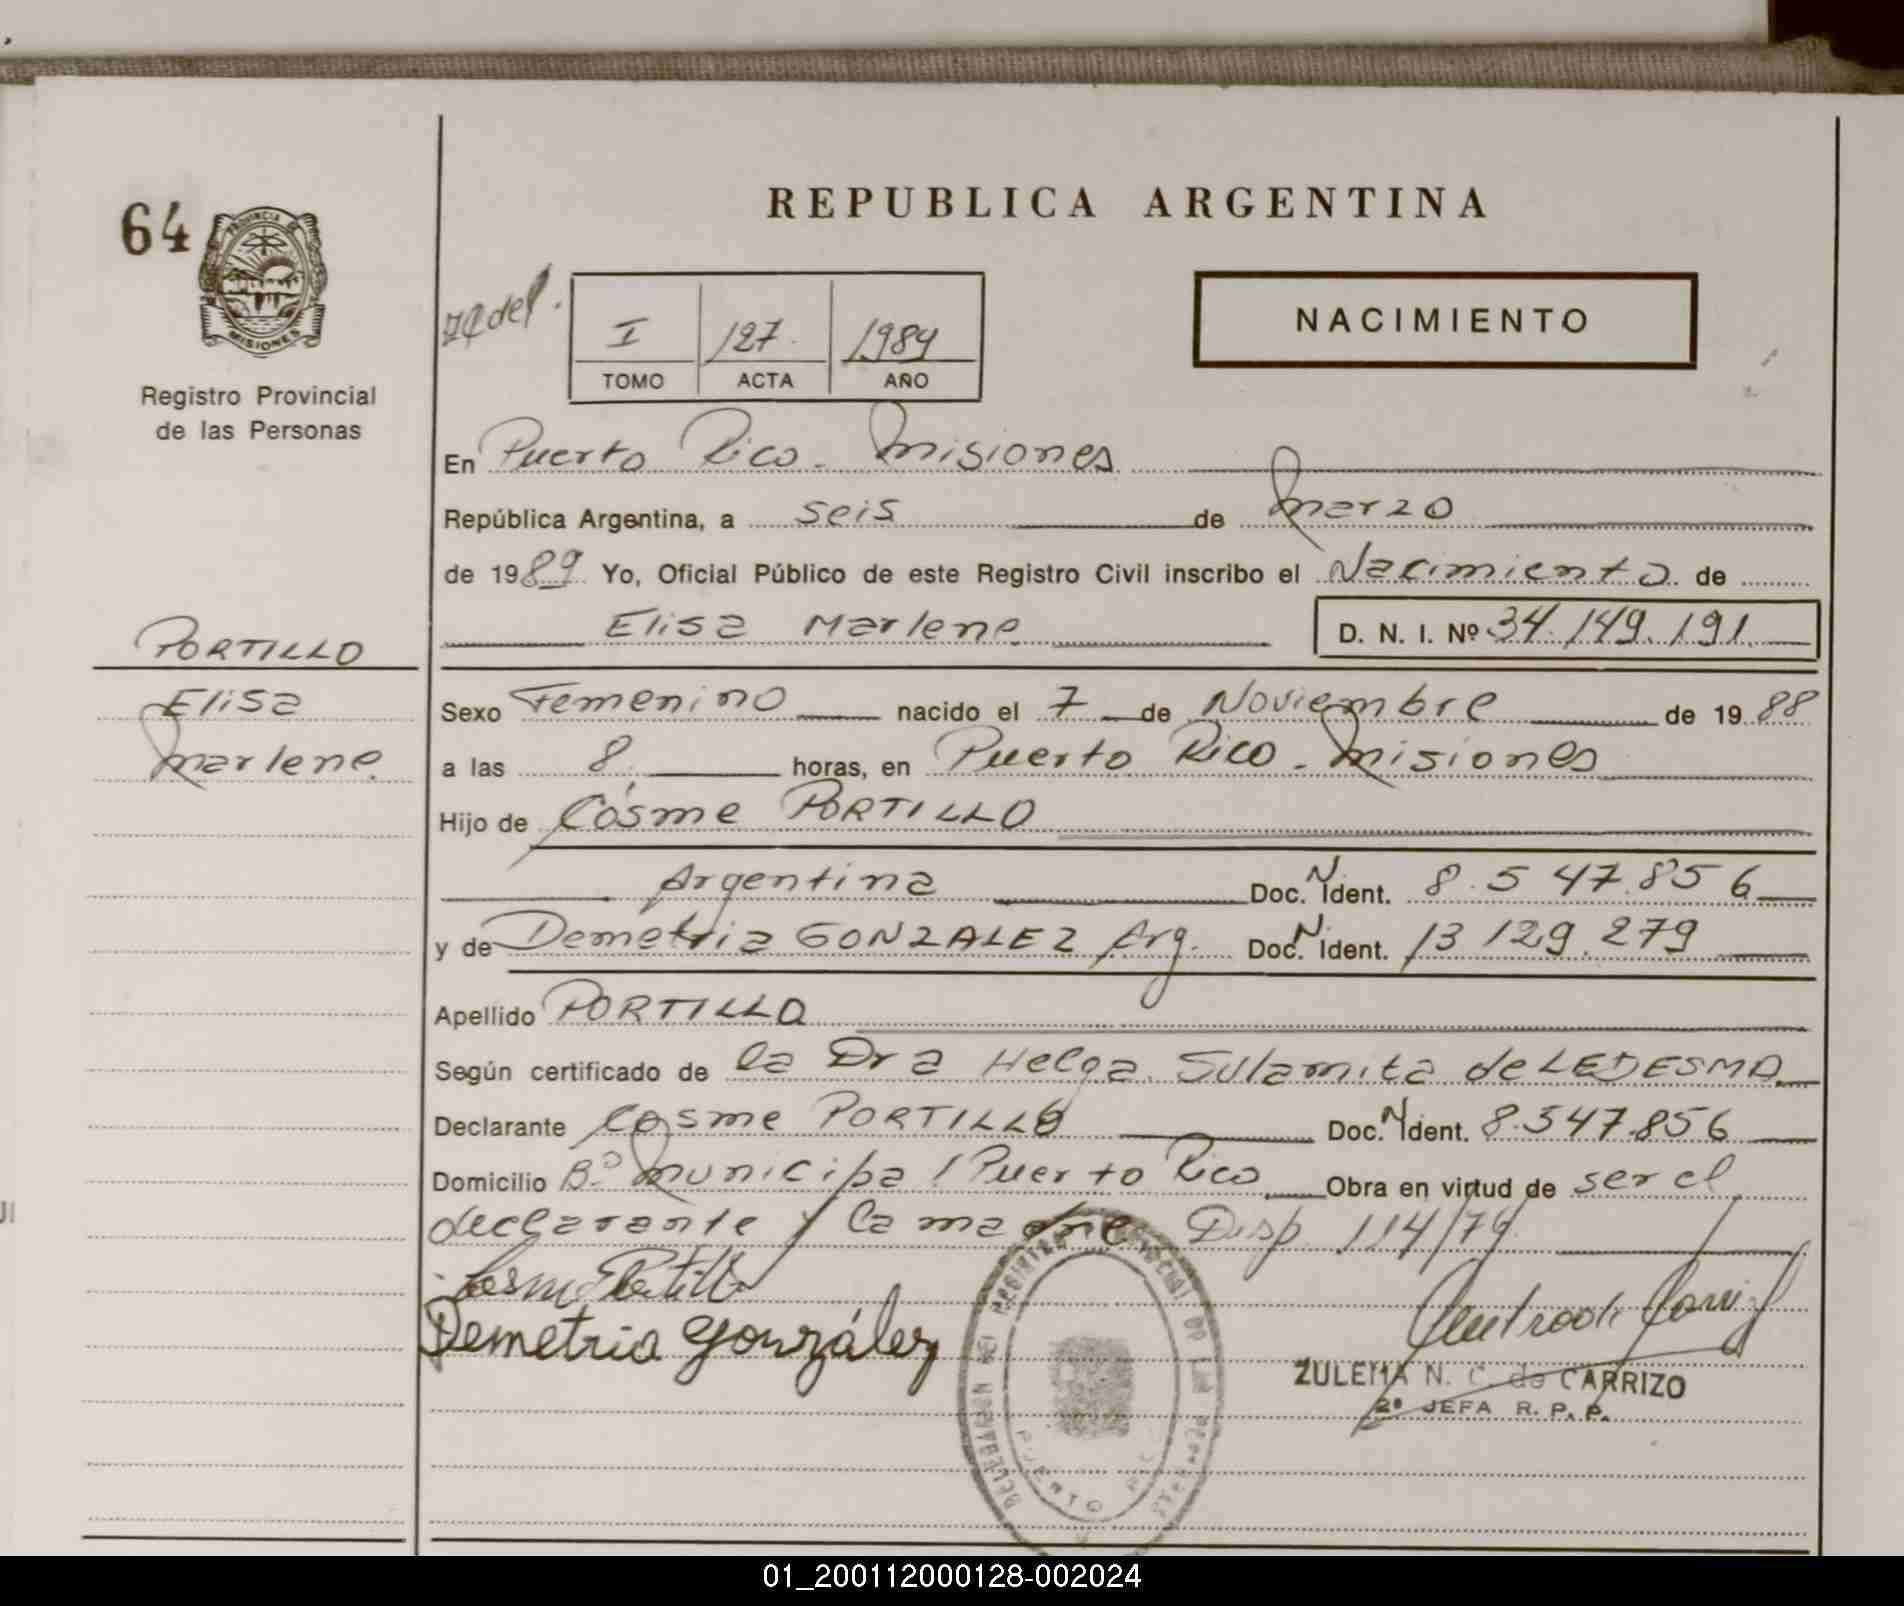 REPUBLICA ARGENTINA
64
PROVINCIA
MISIONES
Registro Provincial
de las Personas
I 127. 1989
TOMO ACTA AÑO
NACIMIENTO
En Puerto Rico - Misiones
República Argentina, a seis de Marzo
de 1989 Yo, Oficial Público de este Registro Civil inscribo el Nacimiento de
Elisa Marlene D. N. I. Nº 34.149.191
PORTILLO
Elisa
Marlene
Sexo Femenino nacido el 7 de Noviembre de 1988
a las 8 horas, en Puerto Rico - Misiones
Hijo de Cosme PORTILLO
Argentina Doc. N. Ident. 8.547.856
y de Demetria GONZALEZ Arg. Doc. N. Ident. 13.129.279
Apellido PORTILLO
Según certificado de la Dra Helga Sulamita de LEDESMA
Declarante Cosme PORTILLO Doc. N. Ident. 8.547.856
Domicilio Bº Municipal Puerto Rico Obra en virtud de ser el
declarante y la madre Disp. 114/79
Cosme Portillo
Demetria González
ZULEMA N. C. de CARRIZO
2ª JEFA R. P. P.
DELEGACION DEL REGISTRO PROVINCIAL DE LAS PERSONAS
PUERTO RICO
01_200112000128-002024